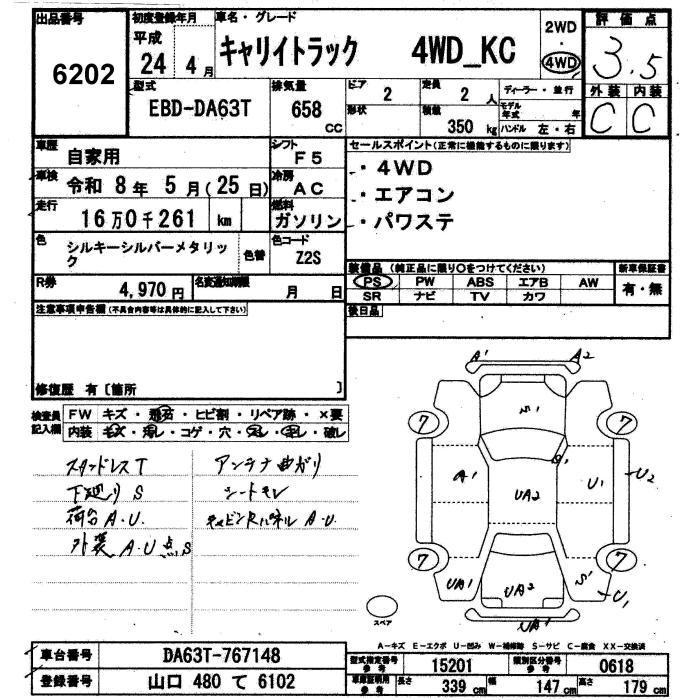 出品番号
6202
初度登録年月
平成
24 4月
車名・グレード
キャリイトラック 4WD_KC
2WD
・
4WD
評価点
3.5
外装 内装
C C
型式
EBD-DA63T
排気量
658 cc
ドア
2
定員
2 人
形状
積載
350 kg
ディーラー・並行
モデル年式 年
ハンドル 左・右
車歴
自家用
シフト
F5
車検
令和 8年 5月(25日)
冷房
AC
走行
16万0千261 km
燃料
ガソリン
色
シルキーシルバーメタリック
色替
色コード
Z2S
R券
4,970円
名変通知期限
月 日
セールスポイント(正常に機能するものに限ります)
・4WD
・エアコン
・パワステ
装備品(純正品に限り○をつけてください)
PS PW ABS エアB AW
SR ナビ TV カワ
新車保証書
有・無
後日品
注意事項申告欄(不具合内容等は具体的に記入して下さい)
修復歴 有〔箇所 〕
検査員記入欄
FW キズ・飛石・ヒビ割・リペア跡・×要
内装 キズ・汚レ・コゲ・穴・スレ・キレ・破レ
スタッドレスT
下廻り S
荷台 A.U.
外装 A.U点S
アンテナ曲ガリ
シートモレ
A.U.
A1 A2
S1
7 7
A1 S1 U1 U2
UA2
7 7
UA1 UA2 S1 U1
UA1
スペア
A-キズ E-エクボ U-凹み W-補修跡 S-サビ C-腐食 XX-交換済
車台番号
DA63T-767148
登録番号
山口 480 て 6102
型式指定番号 参考
15201
類別区分番号 参考
0618
車庫証明用 参考
長さ 339 cm 幅 147 cm 高さ 179 cm